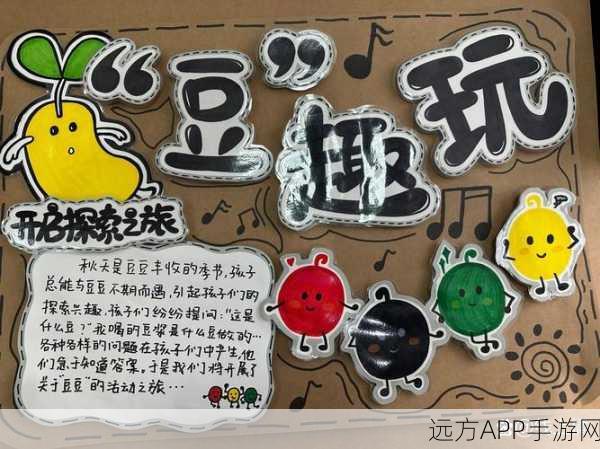 “豆”趣玩
开启探索之旅
秋天是豆豆丰收的季节，孩子
总能与豆豆不期而遇，引起孩子们的
探索兴趣，孩子们纷纷提问：“这是
什么豆？”我喝的豆浆是什么豆做的…
各种各样的问题在孩子们中产生，他
们急于知道答案，于是我们将开展了
关于“豆豆”的活动之旅…
远方APP手游网